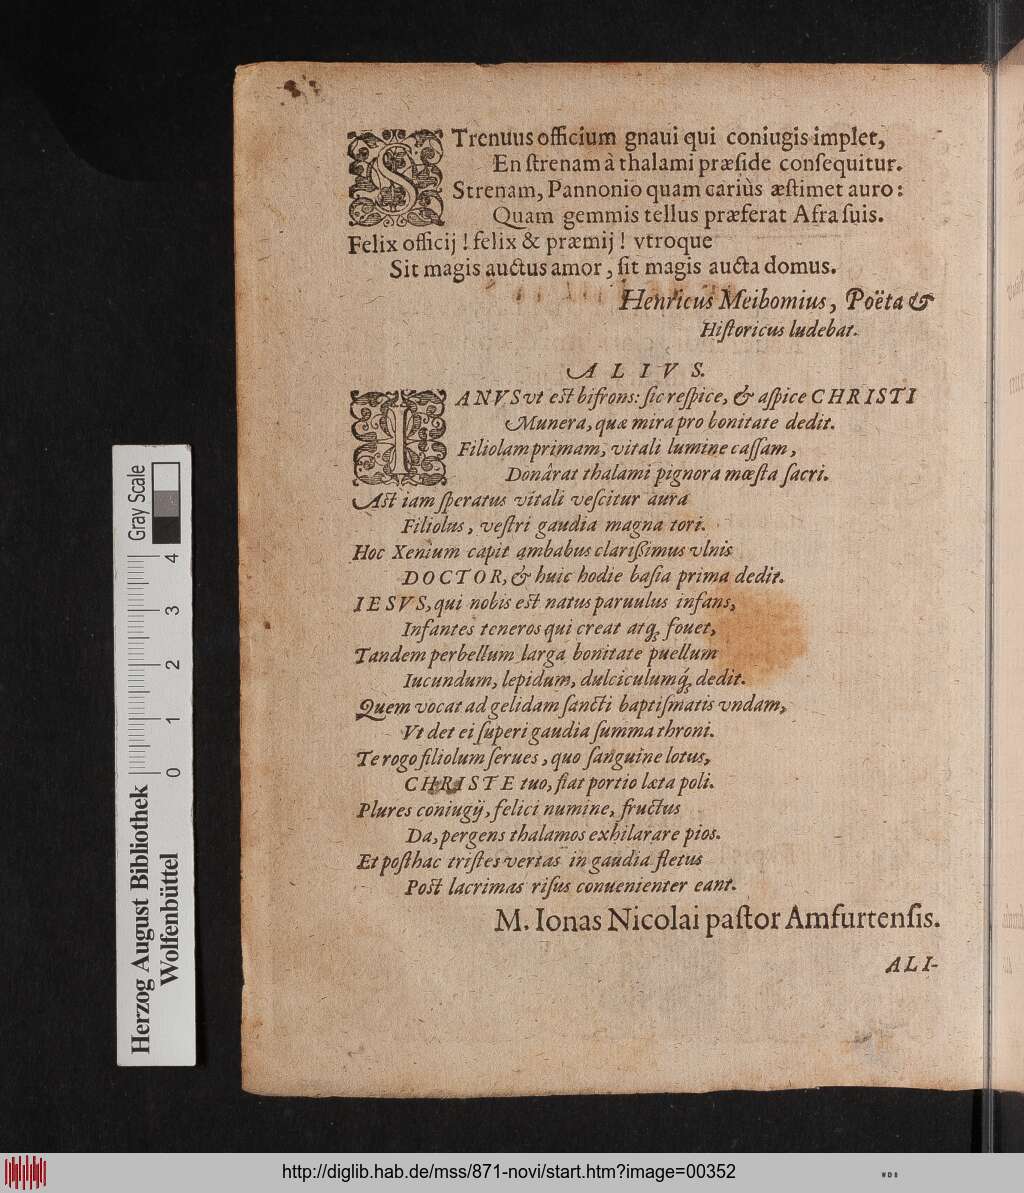 STrenuus officium gnaui qui coniugis implet,
En ſtrenam à thalami præſide conſequitur.
Strenam, Pannonio quam cariùs æſtimet auro:
Quam gemmis tellus præferat Afra ſuis.
Felix officij! felix & præmij! vtroque
Sit magis auctus amor, ſit magis aucta domus.
Henricus Meibomius, Poëta &
Hiſtoricus ludebat.
ALIVS.
IANVS vt eſt bifrons: ſic reſpice, & aſpice CHRISTI
Munera, quæ mira pro bonitate dedit.
Filiolam primam, vitali lumine caſſam,
Donârat thalami pignora mœſta ſacri.
Aſt iam ſperatus vitali veſcitur aura
Filiolus, veſtri gaudia magna tori.
Hoc Xenium capit ambabus clariſſimus vlnis
DOCTOR, & huic hodie baſia prima dedit.
IESVS, qui nobis eſt natus paruulus infans,
Infantes teneros qui creat atq; fouet,
Tandem perbellum larga bonitate puellum
Iucundum, lepidum, dulciculumq; dedit.
Quem vocat ad gelidam ſancti baptiſmatis vndam,
Vt det ei ſuperi gaudia ſumma throni.
Te rogo filiolum ſerues, quo ſanguine lotus,
CHRISTE tuo, fiat portio læta poli.
Plures coniugij, felici numine, fructus
Da, pergens thalamos exhilarare pios.
Et poſthac triſtes vertas in gaudia fletus
Poſt lacrimas riſus conuenienter eant.
M. Ionas Nicolai paſtor Amfurtenſis.
ALI-
Herzog August Bibliothek
Wolfenbüttel
0 1 2 3 4
Gray Scale
http://diglib.hab.de/mss/871-novi/start.htm?image=00352